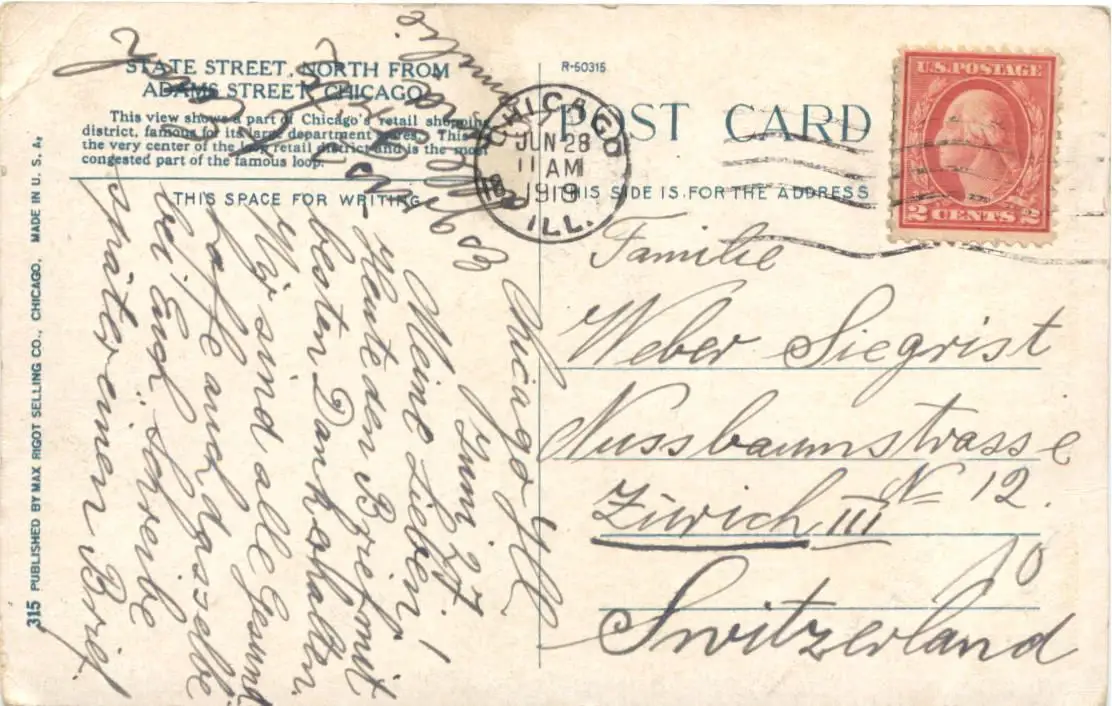 STATE STREET, NORTH FROM
ADAMS STREET, CHICAGO
This view shows a part of Chicago's retail shopping
district, famous for its large department stores. This is
the very center of the loop retail district and is the most
congested part of the famous loop.
THIS SPACE FOR WRITING
315 PUBLISHED BY MAX RIGOT SELLING CO., CHICAGO. MADE IN U. S. A.
Chicago Ill
Juni 27
Meine Lieben!
Heute den Brief mit
besten Dank erhalten.
Wir sind alle Gesund
hoffe auch dasselbe
bei Euch. schreibe
später einen Brief.
R-50315
POST CARD
THIS SIDE IS FOR THE ADDRESS
CHICAGO
JUN 28
11 AM
1919
ILL.
U.S. POSTAGE
2 CENTS 2
Familie
Weber Siegrist
Nussbaumstrasse
N 12.
Zürich III
10
Switzerland